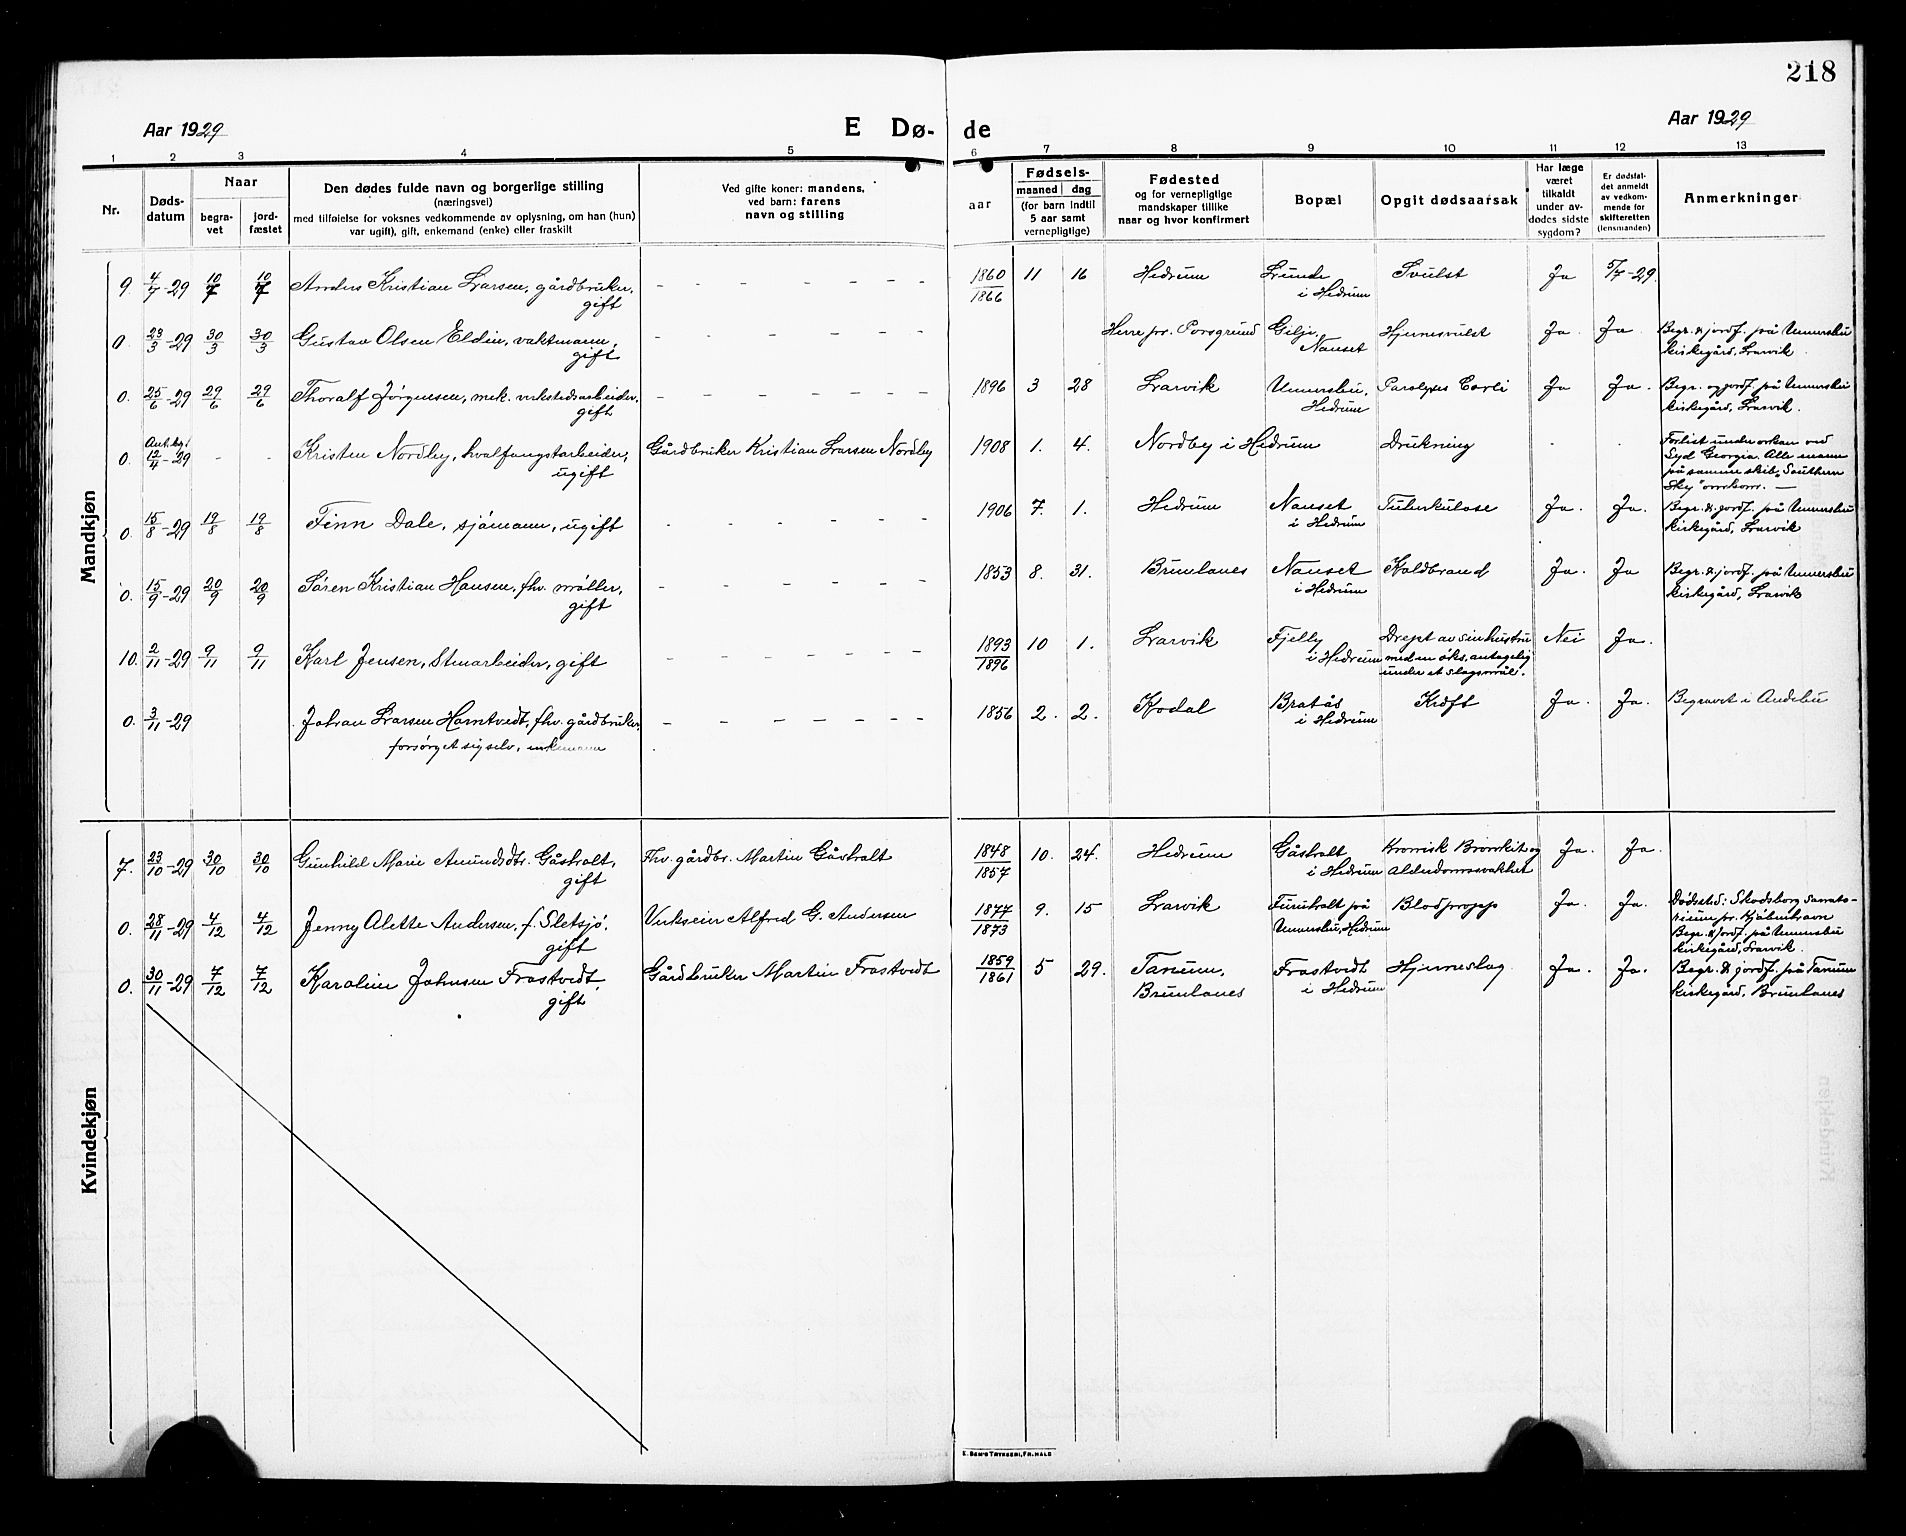 218
Aar 1929
E Dø-
de
Aar 1929
1 2 3 4 5 6 7 8 9 10 11 12 13
Nr.
Døds-
datum
Naar
begra-
vet
jord-
fæstet
Den dødes fulde navn og borgerlige stilling
(næringsvei)
med tilføielse for voksnes vedkommende av oplysning, om han (hun)
var ugift), gift, enkemand (enke) eller fraskilt
Ved gifte koner: mandens,
ved barn: farens
navn og stilling
aar
Fødsels-
maaned dag
(for barn indtil
5 aar samt
vernepligtige)
Fødested
og for vernepligtige
mandskaper tillike
naar og hvor konfirmert
Bopæl
Opgit dødsaarsak
Har læge
været
tilkaldt
under av-
dødes sidste
sygdom?
Er dødsfal-
det anmeldt
av vedkom-
mende for
skifteretten
(lensmanden)
Anmerkninger
Mandkjøn
9. 4/7-29 10/7 10/7 Anders Kristian Larsen, gårdbruker, - - - - - - 1860 11 16 Hedrum Lunde Svulst Ja 5/7-29.
gift 1866 i Hedrum
0. 23/3-29 30/3 30/3 Gustav Olsen Eldin, vaktmann, - - - - - - Herre pr. Porsgrund Gilje Hjernesvulst Ja. Ja. Begr. & jordf. på Undersbu
gift. Nanset kirkegård, Larvik.
0. 25/6-29 29/6 29/6 Thoralf Jørgensen, mek. verkstedsarbeider, - - - - - - - 1896 3 28 Larvik Undersbu, Paralyses Cordi Ja Ja. Begr. og jordf. på Undersbu
gift. Hedrum kirkegård, Larvik.
Ant. bgr.
0. 12/4-29 - - Kristen Nordby, hvalfangstarbeider, Gårdbruker Kristian Larsen Nordby 1908 1. 4. Nordby i Hedrum Drukning - - Forlist under orkan ved
ugift Syd Georgia. Alle mann
på samme skib "Southern
Sky" omkom. —
0. 15/8-29 19/8 19/8 Finn Dale, sjømann, ugift - - - - - - 1906 7. 1. Hedrum Nanset Tuberkulose Ja. Ja. Begr. & jordf. på Undersbu
i Hedrum kirkegård, Larvik
0. 15/9-29 20/9 20/9 Søren Kristian Hansen, fhv. møller, - - - - - - - 1853 8. 31. Brunlanes Nanset Koldbrand Ja. Ja Begr. & jordf. på Undersbu
gift i Hedrum kirkegård, Larvik
10. 2/11-29 9/11 9/11 Karl Jensen, Stenarbeider, gift - - - - - - - - 1893 10 1. Larvik Fjelly Drept av sin hustru Nei Ja.
1896 i Hedrum med en øks, antagelig
under et slagsmål.
0. 3/11-29 Johan Larsen Hamtvedt, fhv. gårdbruker, - - - - - - - 1856 2. 2. Kodal Bratås Kræft Ja. Ja. Begravet i Andebu
forsørget sig selv, enkemann i Hedrum
Kvindekjøn
7. 23/10-29 30/10 30/10 Gunhild Marie Amundsdtr. Gåsholt, Fhv. gårdbr. Martin Gåsholt 1848 10. 24. Hedrum Gåsholt Kronisk Bronkit og Ja. Ja.
gift 1857 i Hedrum Alderdomssvakhet
0. 28/11-29 4/12 4/12 Jenny Alette Andersen, f. Sletsjø, Verkseier Alfred G. Andersen 1877 9. 15 Larvik Furuholt på Blodpropp Ja. Ja. Dødssted: Skodsborg Sanato-
gift 1873 Undersbu, Hedrum rium pr. Kjøbenhavn
Begr. & jordf. på Undersbu
kirkegård, Larvik.
0. 30/11-29 7/12 7/12 Karoline Johnsen Frostvedt, Gårdbruker Martin Frostvedt 1859 5 29. Tanum, Frostvedt Hjerneslag. Ja. Ja. Begr. & jordf. på Tanum
gift 1861 Brunlanes i Hedrum kirkegård, Brunlanes
E. SEM'S TRYKKERI, FR.HALD